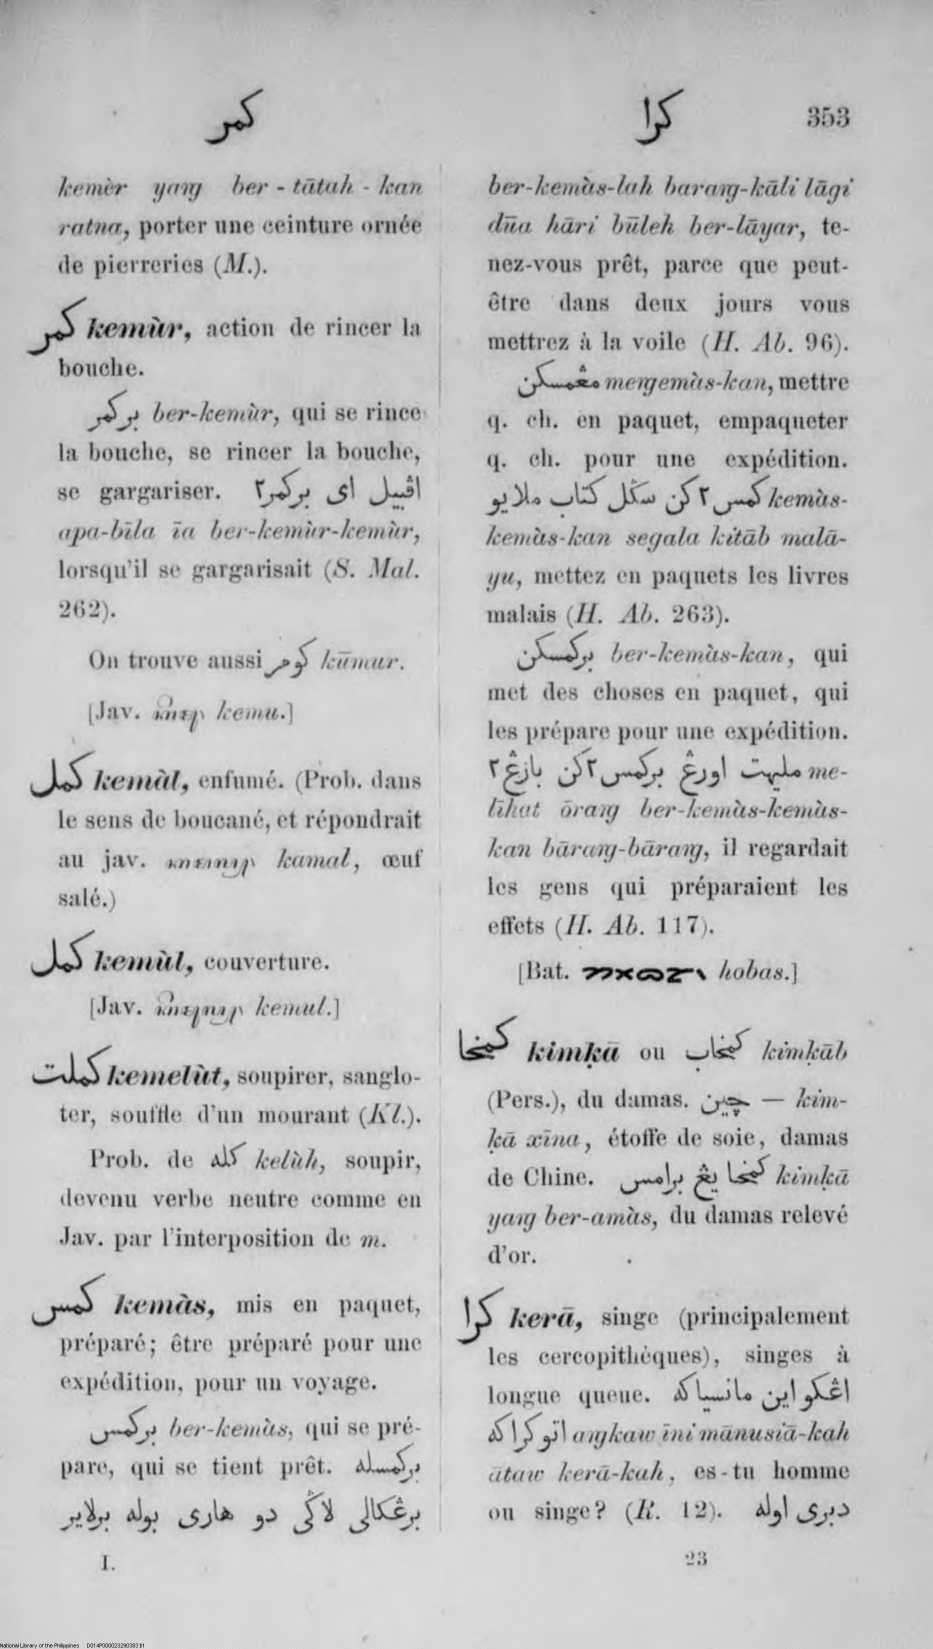 كمر
كرا 353
kemèr yaŋ ber-tātah-kan
ratna, porter une ceinture ornée
de pierreries (M.).
كمر kemùr, action de rincer la
bouche.
بركمر ber-kemùr, qui se rince
la bouche, se rincer la bouche,
se gargariser. اڤبيل اى بركمر٢
apa-bīla īa ber-kemùr-kemùr,
lorsqu'il se gargarisait (S. Mal.
262).
On trouve aussi كومر kūmur.
[Jav. kemu.]
كمل kemàl, enfumé. (Prob. dans
le sens de boucané, et répondrait
au jav. kamal, œuf
salé.)
كمل kemùl, couverture.
[Jav. kemul.]
كملت kemelùt, soupirer, sanglo-
ter, souffle d'un mourant (Kl.).
Prob. de كله kelùh, soupir,
devenu verbe neutre comme en
Jav. par l'interposition de m.
كمس kemàs, mis en paquet,
préparé; être préparé pour une
expédition, pour un voyage.
بركمس ber-kemàs, qui se pré-
pare, qui se tient prêt. بركمسله
برڠكالى لاڬى دو هارى بوله برلاير
I.
ber-kemàs-lah baraŋ-kāli lāgi
dūa hāri būleh ber-lāyar, te-
nez-vous prêt, parce que peut-
être dans deux jours vous
mettrez à la voile (H. Ab. 96).
مڠمسكن meŋemàs-kan, mettre
q. ch. en paquet, empaqueter
q. ch. pour une expédition.
كمس٢كن سڬل كتاب ملايو kemàs-
kemàs-kan segala kitāb malā-
yu, mettez en paquets les livres
malais (H. Ab. 263).
بركمسكن ber-kemàs-kan, qui
met des choses en paquet, qui
les prépare pour une expédition.
مليهت اورڠ بركمس٢كن بارڠ٢ me-
līhat ōraŋ ber-kemàs-kemàs-
kan bāraŋ-bāraŋ, il regardait
les gens qui préparaient les
effets (H. Ab. 117).
[Bat. hobas.]
كمخا kimḳā ou كمخاب kimḳāb
(Pers.), du damas. چين — kim-
ḳā xīna, étoffe de soie, damas
de Chine. كمخا يڠ برامس kimḳā
yaŋ ber-amàs, du damas relevé
d'or.
كرا kerā, singe (principalement
les cercopithèques), singes à
longue queue. اڠكو اين مانسياكه
اتو كراكه aŋkaw īni mānusiā-kah
ātaw kerā-kah, es-tu homme
ou singe? (R. 12). دبرى اوله
23
National Library of the Philippines